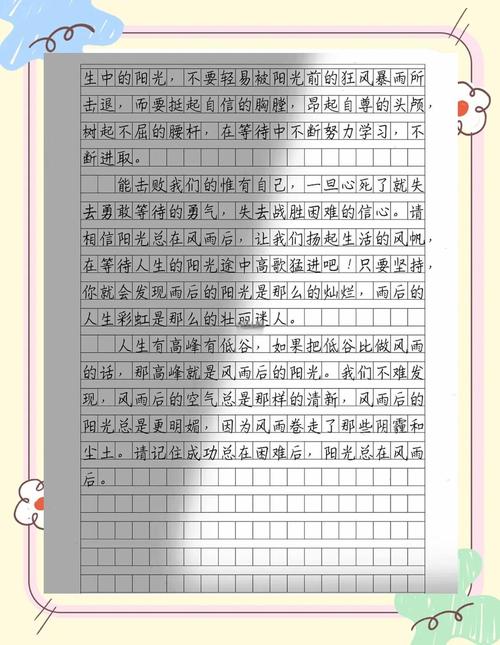 生中的阳光，不要轻易被阳光前的狂风暴雨所
击退，而要挺起自信的胸膛，昂起自尊的头颅，
树起不屈的腰杆，在等待中不断努力学习，不
断进取。
能击败我们的惟有自己，一旦心死了就失
去勇敢等待的勇气，失去战胜困难的信心。请
相信阳光总在风雨后，让我们扬起生活的风帆，
在等待人生的阳光途中高歌猛进吧！只要坚持，
你就会发现雨后的阳光是那么的灿烂，雨后的
人生彩虹是那么的壮丽迷人。
人生有高峰有低谷，如果把低谷比做风雨
的话，那高峰就是风雨后的阳光。我们不难发
现，风雨后的空气总是那样的清新，风雨后的
阳光总是更明媚，因为风雨卷走了那些阴霾和
尘土。请记住成功总在困难后，阳光总在风雨
后。